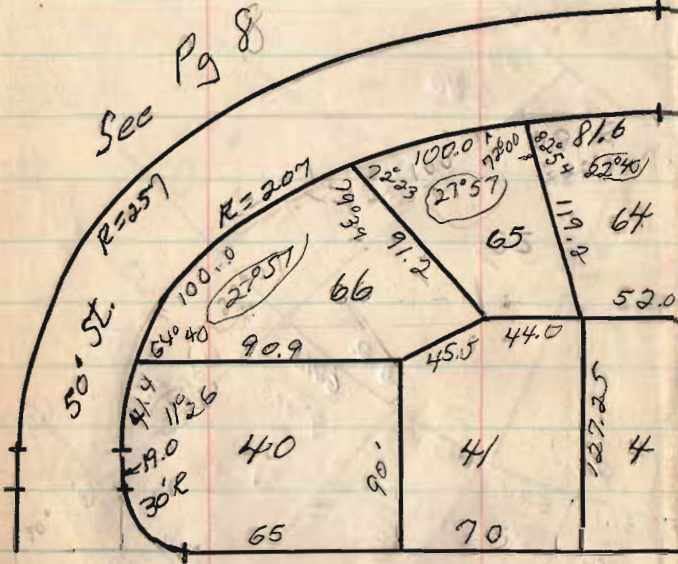 See Pg 8
R=257
50' St.
R=207
100.0
27°57
66
64°40
90.9
79°39
91.2
72°23
100.0
72°00
27°57
65
82°54
81.6
22°40
119.2
64
52.0
44.0
45.5
41.4
11°26
19.0
30'R
40
90'
41
127.25
4
65
70